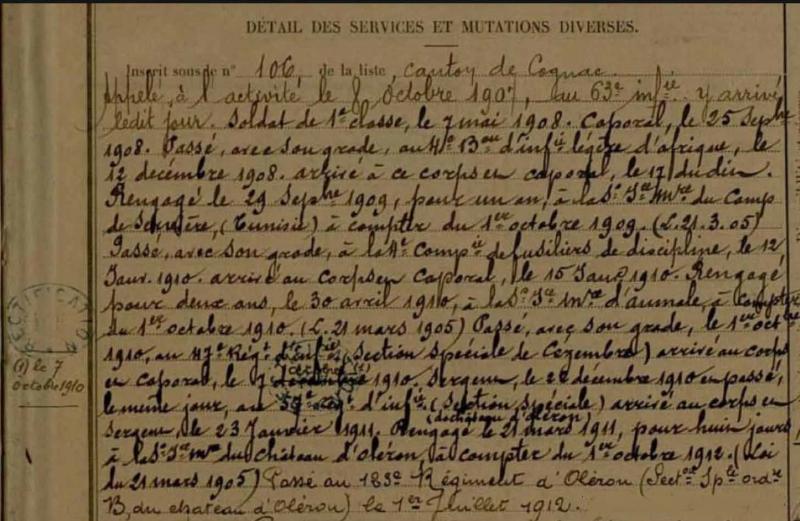 DÉTAIL DES SERVICES ET MUTATIONS DIVERSES.
Inscrit sous le n° 106 de la liste, canton de Cognac.
Appelé à l'activité le 8 Octobre 1907, au 63e infie. y arrivé
ledit jour. Soldat de 1e classe, le 7 mai 1908. Caporal, le 25 Septbre
1908. Passé, avec son grade, au 4e Bon d'infie légère d'afrique, le
12 décembre 1908. arrivé à ce corps en caporal, le 17 du dit.
Rengagé le 29 Sepbre 1909, pour un an, à la Ss Ice Mre du Camp
de (Tunisie) à compter du 1er octobre 1909. (L. 21.3.05)
Passé, avec son grade, à la 4e Compie de fusiliers de discipline, le 12
Janv. 1910. arrivé au corps en caporal, le 15 Janv 1910. Rengagé
pour deux ans, le 30 avril 1910, à la Ss Ice Mre d'aumale, à compter
du 1er octobre 1910. (L. 21 mars 1905) Passé, avec son grade, le 1er oct
1910, au 47e Régt d'infie (Section Spéciale de Cézembre) arrivé au corps
en caporal, le 7 octobre (1) 1910. Sergent, le 22 décembre 1910 et passé,
le même jour, au Régt d'infie. (Section Spéciale) arrivé au corps en
du château d'oléron
Sergent, le 23 Janvier 1911. Rengagé le 21 mars 1911, pour huit jours
à la Ss Ice Mre du Château d'Oléron, à compter du 1er octobre 1912. (Loi
du 21 mars 1905) Passé au Régiment d'Oléron (Secton Sple ordre
B, du chateau d'Oléron) le 1er Juillet 1912.
RECTIFICATION
(1) le 7
octobre 1910